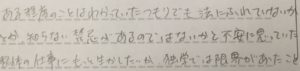 ある程度のことはわかっていたつもりでも法にふれていないか
とか、知らない禁忌があるのではないかと不安に思っていた
の仕事にもっと生かしたいが、独学では限界があったこと